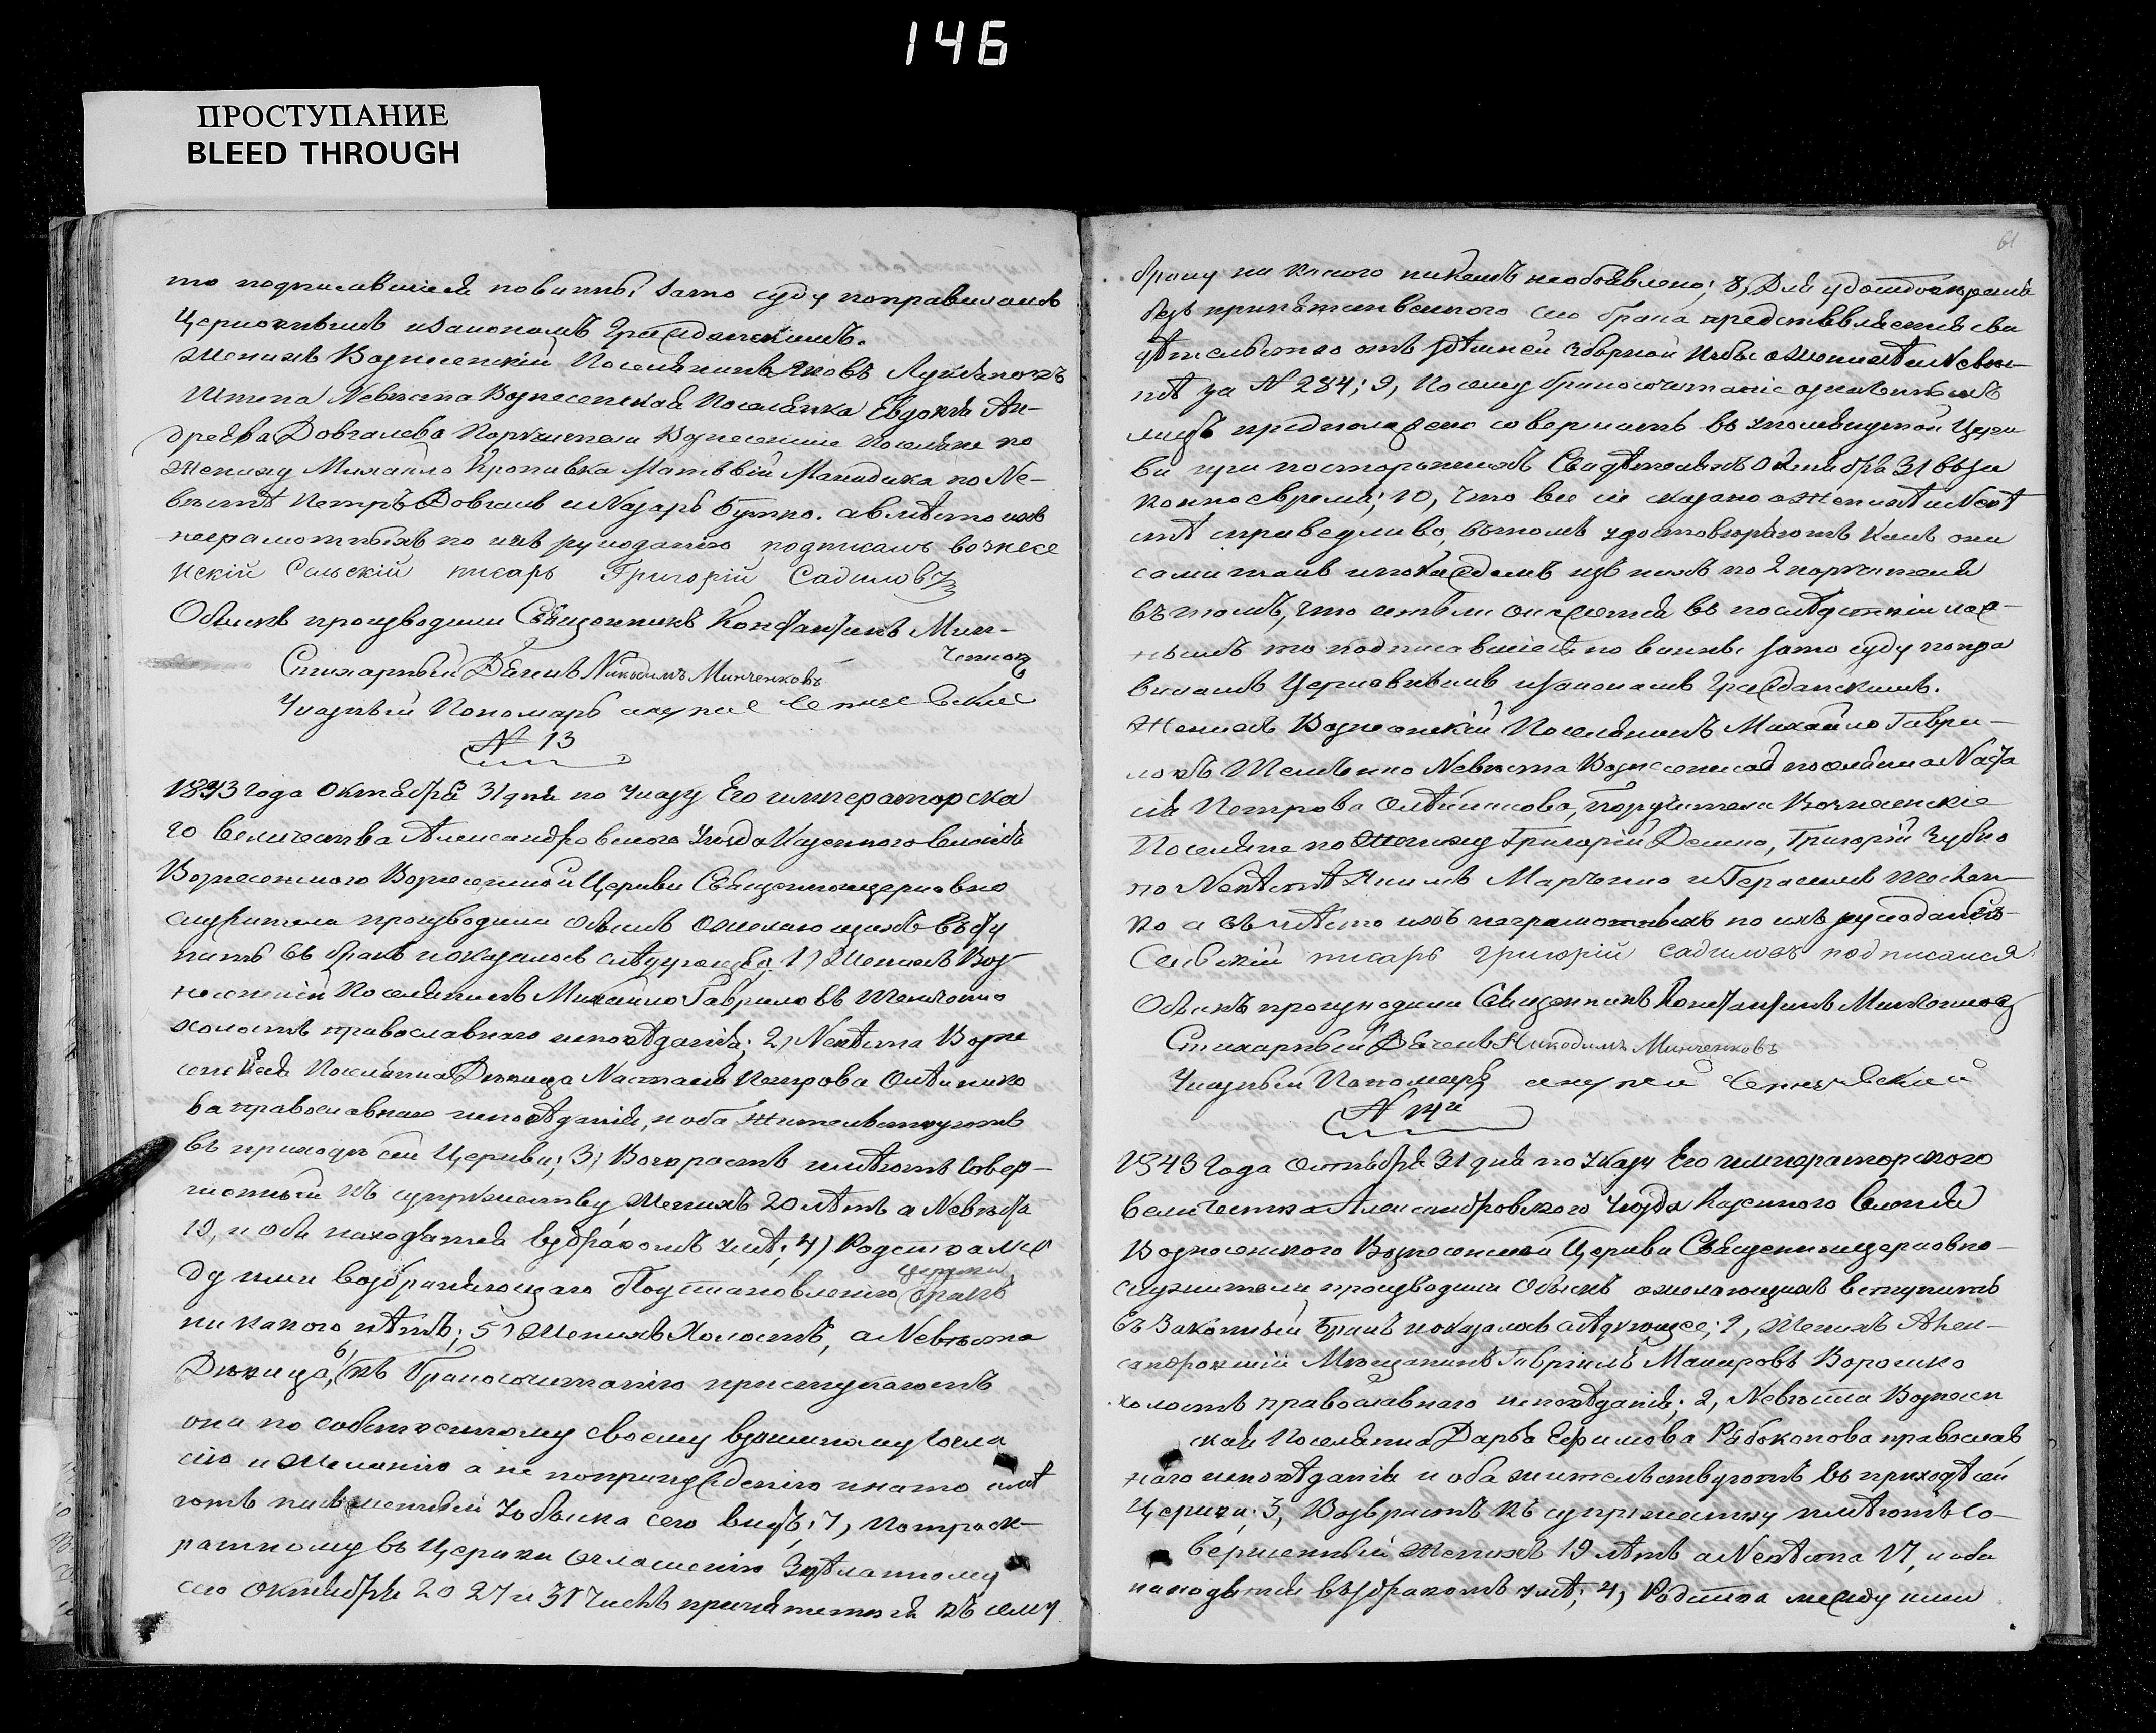 146
ПРОСТУПАНИЕ
BLEED THROUGH
то подписавшіеся повинны зато суду поправиламъ
Церковнымъ изакономъ Гражданскимъ.
Женихъ Вознесенскій Поселянинъ Яковъ Лукьяновъ
Штепа Невѣста Вознесенская Поселянка Евдокія Ан-
дреева Довгалева Поручители Вознесенскіе Поселяне по
Жениху Михайло Кропивка Матвѣй Макидика по Не-
вѣстѣ Петръ Довгаль и Назаръ Бутко. авмѣсто ихъ
неграмотныхъ по ихъ рукоданію подписалъ вознесе
нскій Сельскій писарь Григорій Садиловъ
Обыскъ производили Священникъ Константинъ Мин-
ченковъ
Стихарный Дьячекъ Никодимъ Минченковъ
Указный Пономарь
№ 13
1843 Года Октября 31 дня по Указу Его императорска
го величества Александровского Уезда Казенного Селенія
Вознесенского Вознесенской Церкви Священноцерковно
служители производили обыскъ ожелающихъ всту
пить въ бракъ и оказалось слѣдующее, 1) Женихъ Воз
несенскій Поселянинъ Михайло Гавриловъ Шемченко
холостъ православнаго исповѣданія; 2, Невѣста Возне
сенская Поселянка Дѣвица Настасія Петрова Олѣйнико
ва православнаго исповѣданія, и оба жительствуютъ
въ приходѣ сей Церкви; 3, Возрастъ имѣютъ совер-
шенный къ супружеству Женихъ 20 лѣтъ а Невѣста
19, и оба находятся въздравомъ умѣ; 4) Родства меж
ду ими возбраняющаго Поустановленію бракъ
церкви
никакого нѣтъ; 5) Женихъ Холостъ, а Невѣста
Дѣвица, 6, къ бракосочетанію приступаютъ
они по собственному своему взаимному согла
сію и желанію а не попринужденію инато имѣ
ютъ письменный Уобыска сего видъ; 7, По троек-
ратному въ Церкви оглашенію Здѣланному
сего Октября 20 27 и 31 Чиселъ припятствія къ сему
61
браку ни какого никемъ необъявлено; 8, Для удостовѣренія
безъ припятственного сего брака представляется сви
дѣтельство отъ здѣшней Зборной избы оженихѣ иневѣс-
тѣ за № 284; 9, Посему бракосочетаніе означенныхъ
лицъ предположено совершить въ упомянутой Церк
ви при постороннихъ Свидѣтеляхъ Октября 31 въза
конное время; 10, Что все сіе сказано оженихѣ и Невѣ
стѣ справедливо, вътомъ удостовѣряютъ какъ они
сами такъ и покаждомъ изъ нихъ по 2 поручителя
въ томъ, что естьли окажется въ послѣдствіи лож-
нымъ то подписавшіеся повинны зато суду попра
виламъ Церковнымъ изакономъ Гражданскимъ.
Женихъ Вознесенскій Поселянинъ Михайло Гаври-
ловъ Шемченко Невѣста Вознесенская поселянка Наста
сія Петрова Олѣйникова, Поручители Вознесенскіе
Поселяне по Жениху Григорій Демко, Григорій Зубко
по Невѣстѣ Якимъ Марченко и Герасимъ
ко а въмѣсто ихъ неграмотныхъ по ихъ рукоданію
Сельскій писарь Григорій Садиловъ подписался
Обыскъ производили Священникъ Константинъ Минченковъ
Стихарный Дьячекъ Никодимъ Минченковъ
Указный Пономарь
№ 14й
1843 Года Октября 31 дня по Указу Его императорского
величества Александровского Уезда Казенного Селенія
Вознесенского Вознесенской Церкви Священноцерковно-
служители производили Обыскъ ожелающихъ вступить
въ Законный бракъ и оказалось слѣдующее; 1, Женихъ Алек-
сандровскій Мещанинъ Гавріилъ Макаровъ Ворошко
холостъ православнаго исповѣданія; 2, Невѣста Вознесен
ская Поселянка Дарья Ефимова Рябоконова православ
наго исповѣданія и оба жительствуютъ въ приходѣ сей
Церкви; 3, Возврастъ къ супружеству имѣютъ со-
вершенный Женихъ 19 лѣтъ а Невѣста 17, и оба
находятся въздравомъ умѣ; 4, Родства между ими